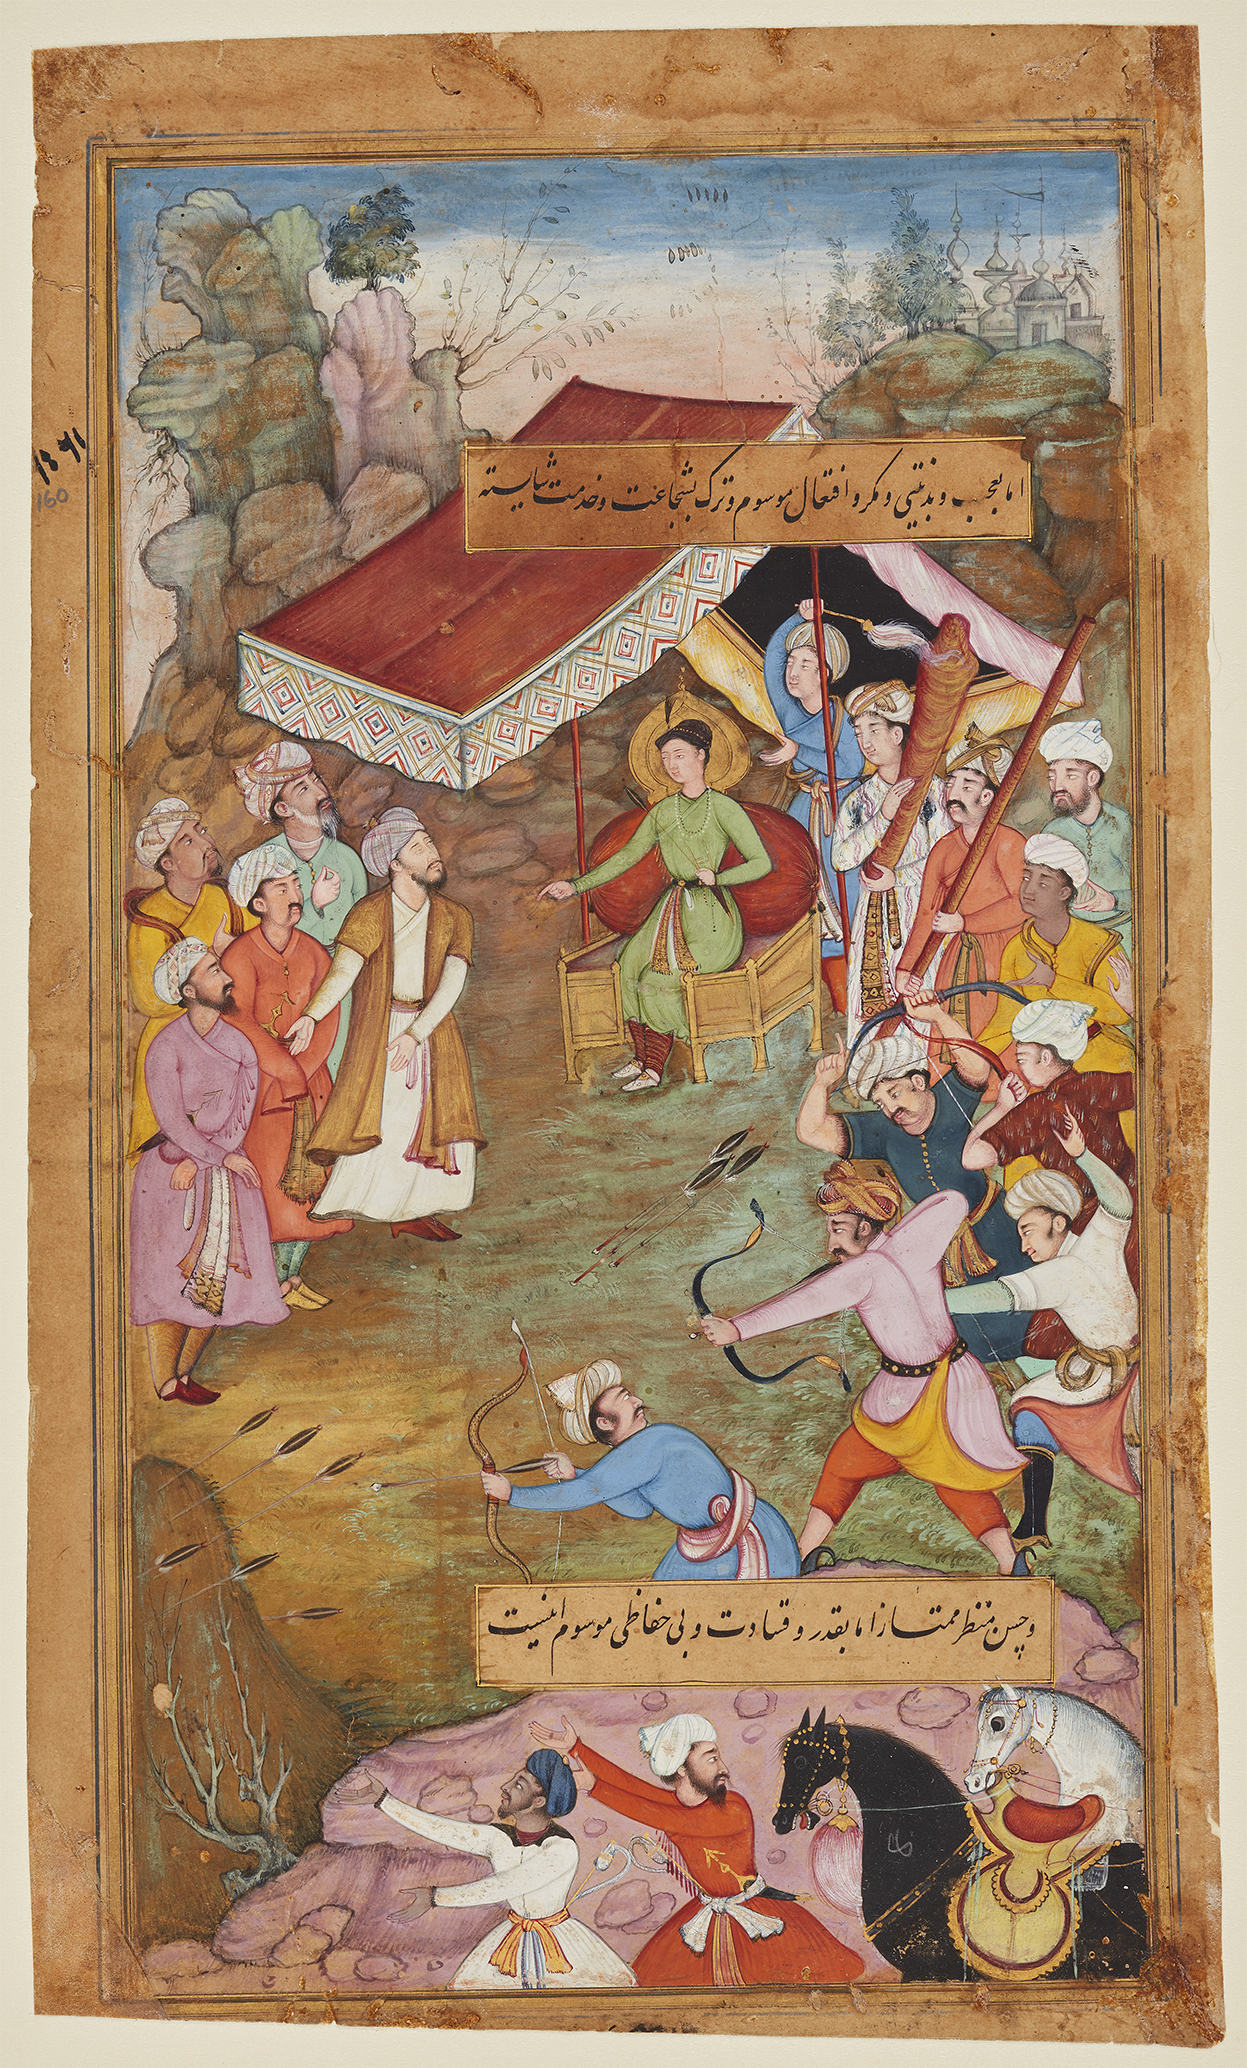 اما بعجب و بدنیتی و مکر و افتعال موسوم و ترک بشجاعت و خدمت شایسته
160
و حسن منظر ممتاز اما بقدر و قساوت و بی حفاظی موسوم اینست